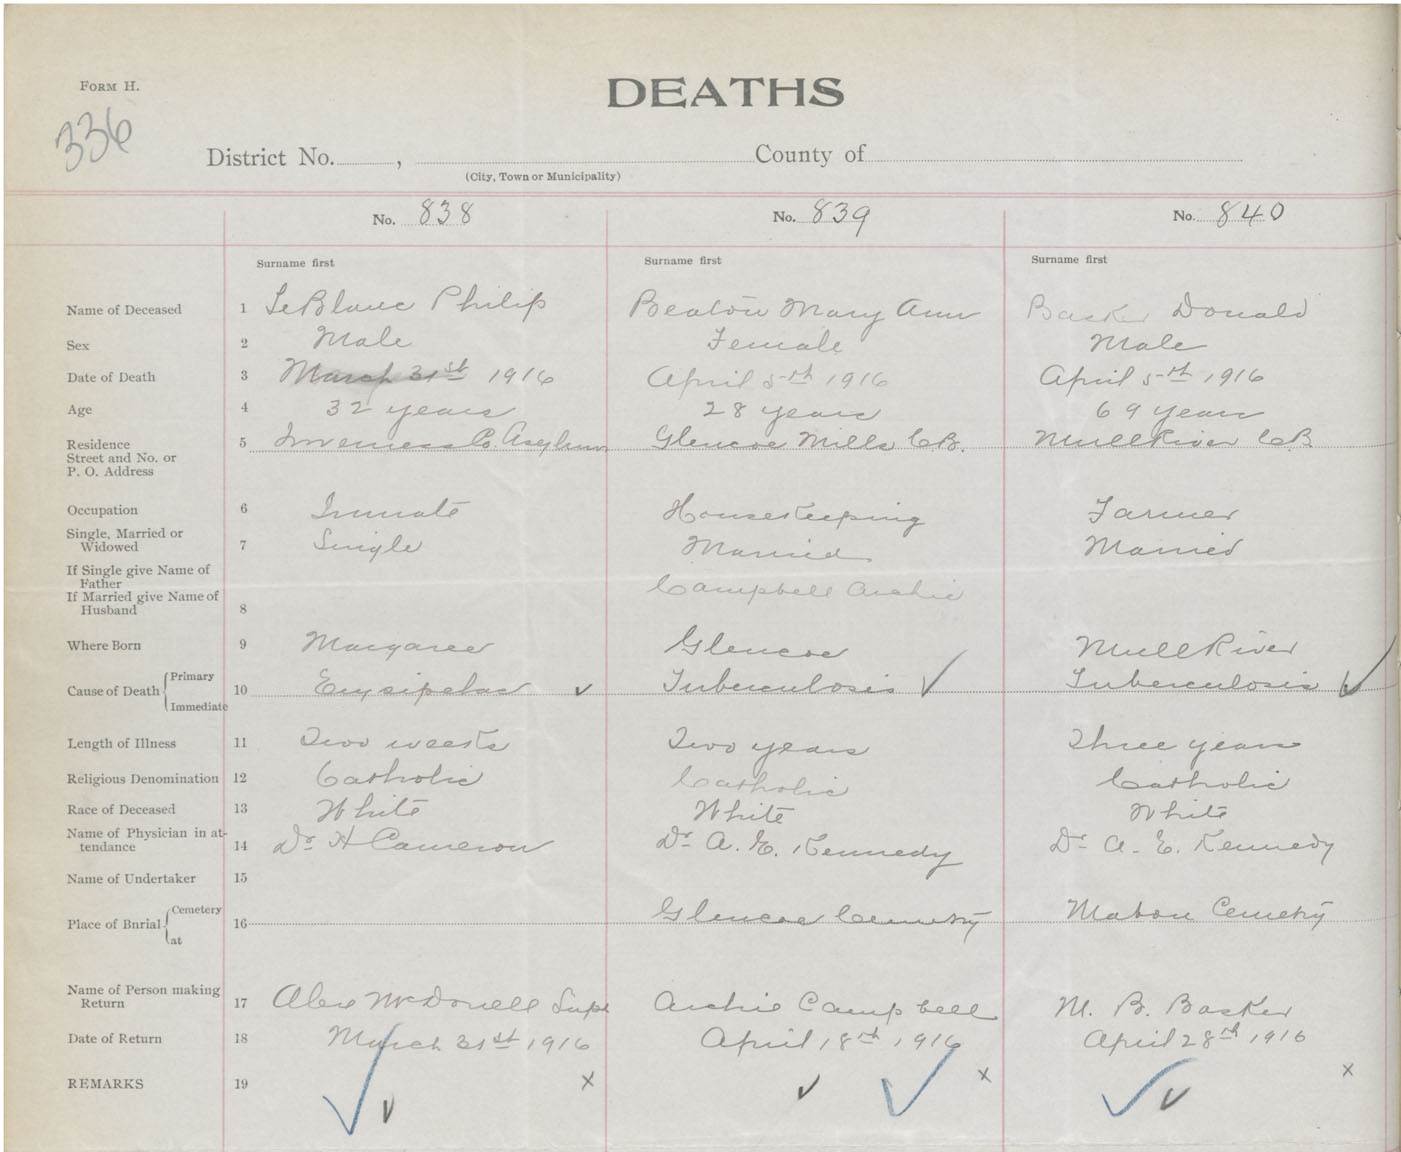 FORM H.
DEATHS
336
District No. , County of
(City, Town or Municipality)
No. 838 No. 839 No. 840
Surname first Surname first Surname first
Name of Deceased 1 LeBlanc Philip Beaton Mary Ann Basker Donald
Sex 2 Male Female Male
Date of Death 3 March 31st 1916 April 5th 1916 April 5th 1916
Age 4 32 years 28 years 69 years
Residence 5 Inverness Co. Asylum Glencoe Mills C.B. Mull River C.B.
Street and No. or
P. O. Address
Occupation 6 Inmate Housekeeping Farmer
Single, Married or
Widowed 7 Single Married Married
If Single give Name of
Father Campbell Archie
If Married give Name of
Husband 8
Where Born 9 Margaree Glencoe Mull River
Primary
Cause of Death 10 Erysipelas Tuberculosis Tuberculosis
Immediate
Length of Illness 11 Two weeks Two years Three years
Religious Denomination 12 Catholic Catholic Catholic
Race of Deceased 13 White White White
Name of Physician in at-
tendance 14 Dr. H Cameron Dr. A. E. Kennedy Dr. A. E. Kennedy
Name of Undertaker 15
Cemetery
Place of Bnrial 16 Glencoe Cemetry Mabou Cemetry
at
Name of Person making
Return 17 Alex McDonell Supt Archie Campbell M. B. Basker
Date of Return 18 March 31st 1916 April 18th 1916 April 28th 1916
REMARKS 19 x x x